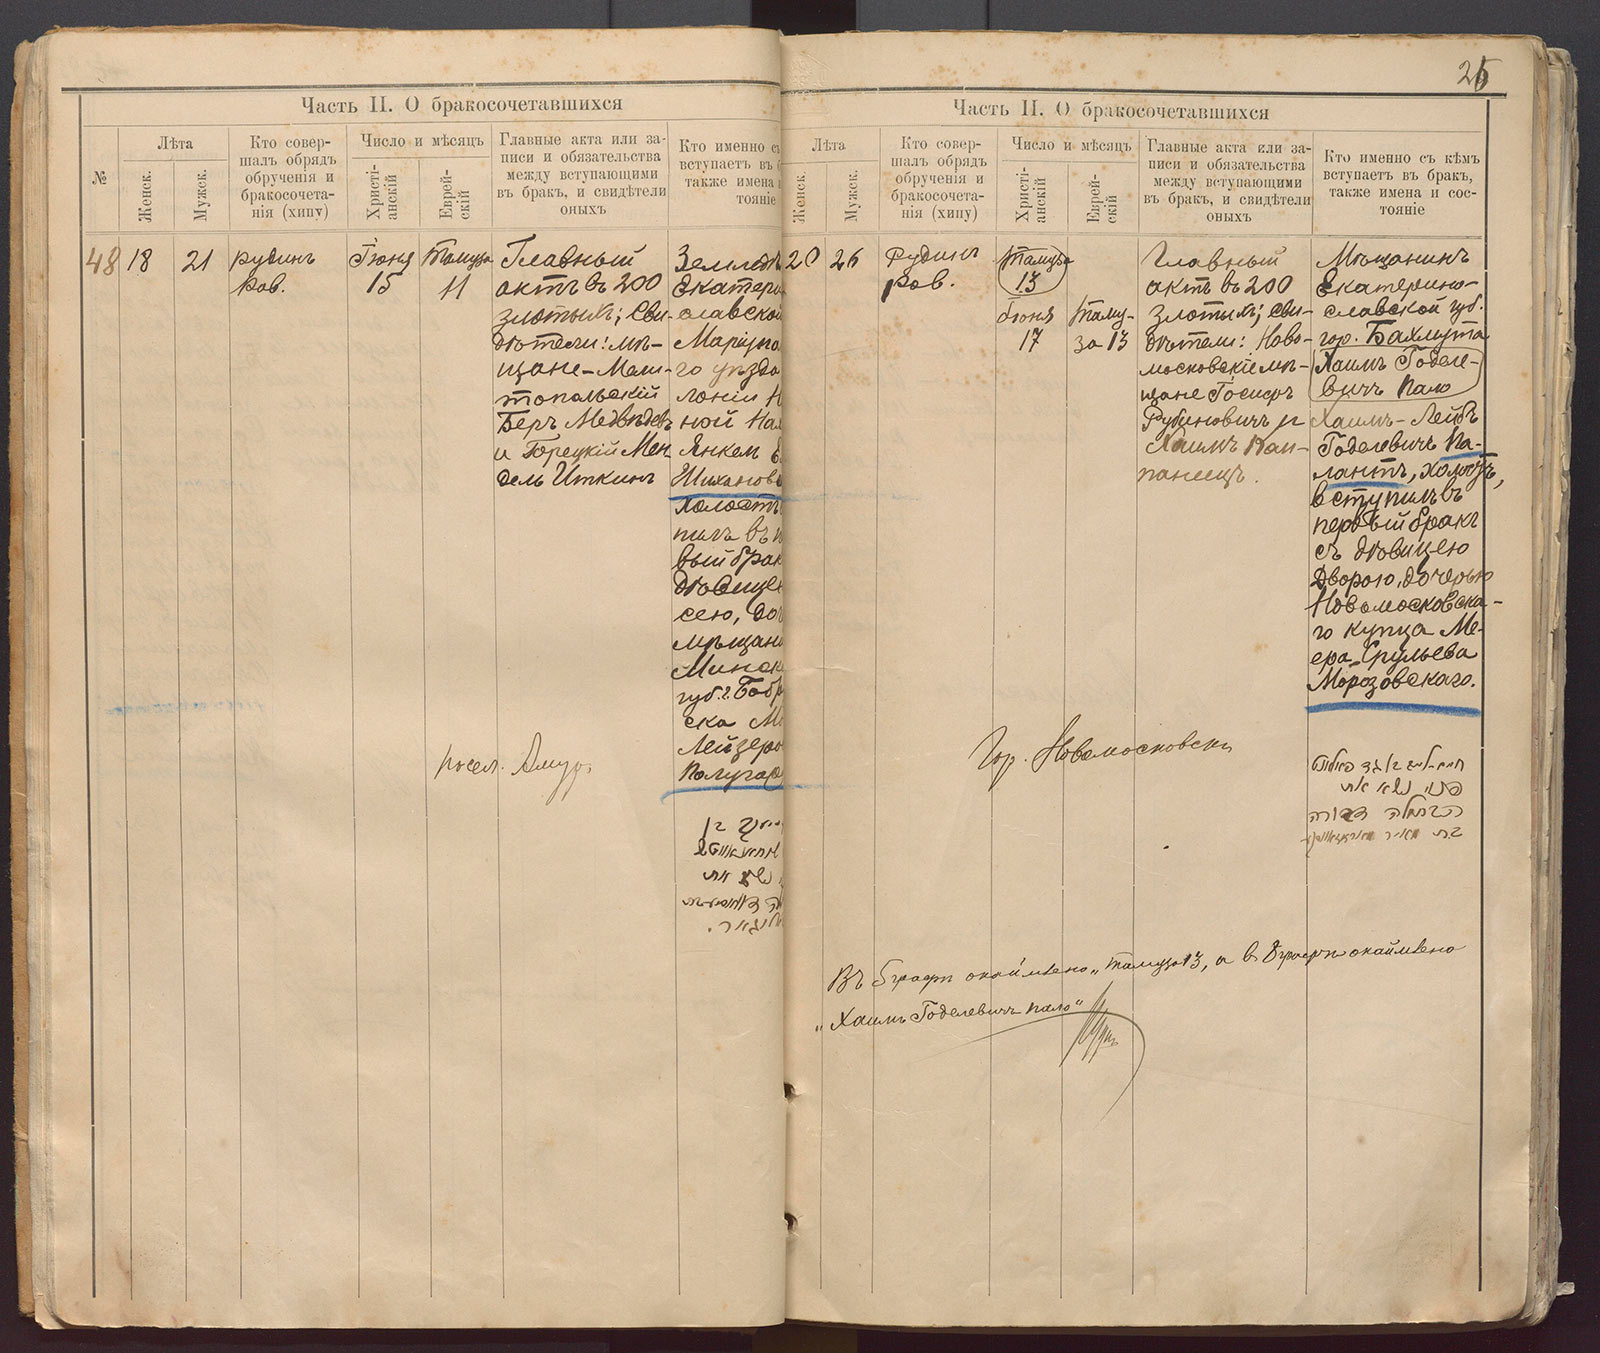 Часть II. О бракосочетавшихся
№
Лѣта
Женск.
Мужск.
Кто совер-
шалъ обрядъ
обрученія и
бракосочета-
нія (хипу)
Число и мѣсяцъ
Христі-
анскій
Еврей-
скій
Главные акта или за-
писи и обязательства
между вступающими
въ бракъ, и свидѣтели
оныхъ
Кто именно с
вступаетъ въ
также имена
тояніе
48
18
21
Рудинъ
Рав.
Іюня
15
Тамуза
11
Главный
актъ въ 200
злотыхъ; сви-
дѣтели: мѣ-
щане - Мели-
топольскій
Беръ Медвѣдевъ
и Горецкій Мен-
дель Иткинъ
Землед
Екатери
ославской
Маріупо
го уѣзда
лоніи Н
ной
Янкель
холостъ
пилъ въ п
вый брак
дѣвице
сею, доч
мѣщани
Минск
губ. г. Бобр
ска М
Лейзеро
Полугар
посел. Амур.
26
Часть II. О бракосочетавшихся
Лѣта
Женск.
Мужск.
Кто совер-
шалъ обрядъ
обрученія и
бракосочета-
нія (хипу)
Число и мѣсяцъ
Христі-
анскій
Еврей-
скій
Главные акта или за-
писи и обязательства
между вступающими
въ бракъ, и свидѣтели
оныхъ
Кто именно съ кѣмъ
вступаетъ въ бракъ,
также имена и сос-
тояніе
20
26
Рудинъ
Рав.
Тамуза
13
Іюня
17
Таму-
за 13
Главный
актъ въ 200
злотыхъ; сви-
дѣтели: Ново-
московскіе мѣ-
щане Іосифъ
Рубиновичъ и
Хаимъ Кап-
ланецъ.
Мѣщанинъ
Екатерино-
славской губ.
гор. Бахмута
Хаимъ Годеле-
вичъ Пало
Хаимъ-Лейбъ
Годелевичъ Па-
лантъ, холостъ,
вступилъ въ
первый бракъ
съ дѣвицею
Дворою, дочерью
Новомосковска-
го купца Ме-
ера-Срульева
Морозовскаго.
Гор. Новомосковскъ
חיים ליב בן גד פאלאנט
פנוי נשא את
הבתולה דבורה
בת מאיר
Въ 5 графѣ окаймлено „Тамуза 13, а в 8 графѣ окаймлено
„Хаимъ Годелевичъ Пало"